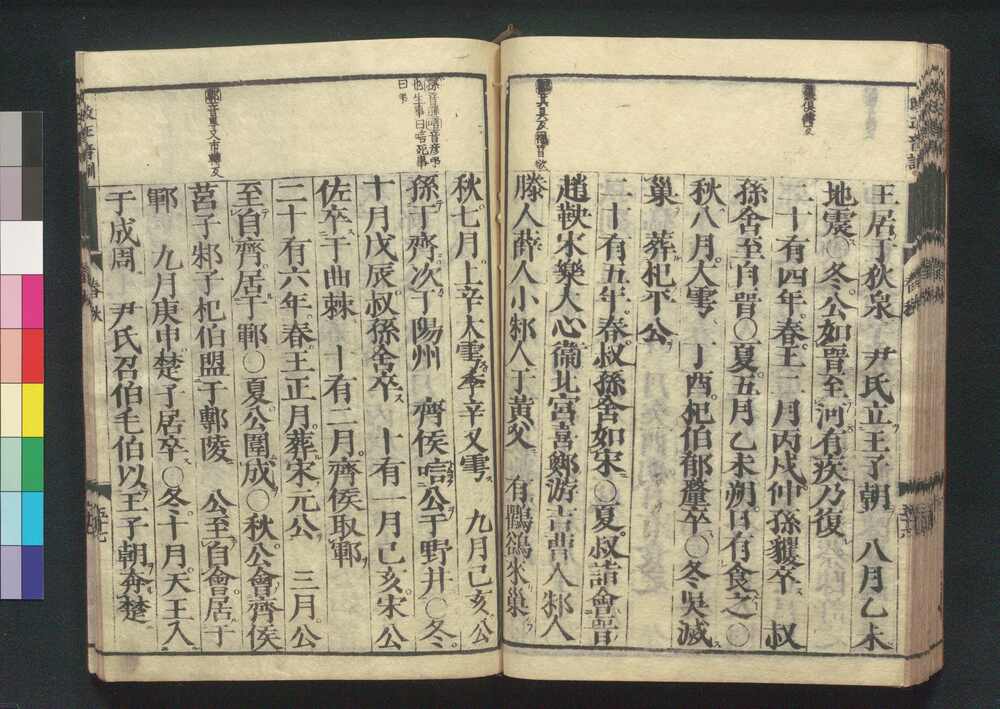 王居于狄泉　尹氏立王子朝　八月乙未
地震○冬公如晉至河有疾乃復
二十有四年春王二月丙戌仲孫貜卒　叔
孫舍至自晉○夏五月乙未朔日有食之○
秋八月大雩　丁酉杞伯郁釐卒○冬吳滅
巢　葬杞平公
二十有五年春叔孫舍如宋○夏叔詣會晉
趙鞅宋樂大心衞北宮喜鄭游吉曹人邾人
滕人薛人小邾人于黃父　有鸜鵒來巢
秋七月上辛大雩季辛又雩　九月己亥公
孫于齊次于陽州　齊侯唁公于野井○冬
十月戊辰叔孫舍卒　十有一月己亥宋公
佐卒于曲棘　十有二月齊侯取鄆
二十有六年春王正月葬宋元公　三月公
至自齊居于鄆○夏公圍成○秋公會齊侯
莒子邾子杞伯盟于鄟陵　公至自會居于
鄆　九月庚申楚子居卒○冬十月天王入
于成周　尹氏召伯毛伯以王子朝奔楚
改正音訓
春秋